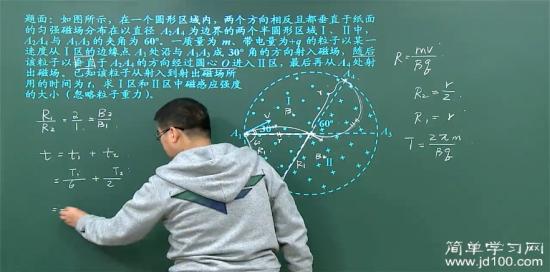 题面：如图所示，在一个圆形区域内，两个方向相反且都垂直于纸面
的匀强磁场分布在以直径 A₂A₄ 为边界的两个半圆形区域Ⅰ、Ⅱ中，
A₂A₄ 与 A₁A₃ 的夹角为 60°。一质量为 m、带电量为+q 的粒子以某一
速度从Ⅰ区的边缘点 A₁ 处沿与 A₁A₃ 成 30°角的方向射入磁场，随后
该粒子以垂直于 A₂A₄ 的方向经过圆心 O 进入Ⅱ区，最后再从 A₄ 处射
出磁场。已知该粒子从射入到射出磁场所
用的时间为 t，求Ⅰ区和Ⅱ区中磁感应强度
的大小（忽略粒子重力）。
R₁/R₂ = 2/1 = B₂/B₁
t = t₁ + t₂
= T₁/6 + T₂/2
=
A₄
Ⅰ
B₁
A₁
30°
60°
A₃
R₁
B₂
Ⅱ
R = mv/Bq
R₂ = r/2
R₁ = r
T = 2πm/Bq
简单学习网
www.jd100.com